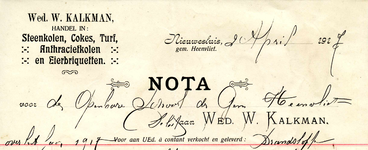 Wed. W. KALKMAN,
HANDEL IN:
Steenkolen, Cokes, Turf,
Anthracietkolen
en Eierbriquetten.
Nieuwesluis, 2 April 1917
gem. Heenvliet.
NOTA
voor de Openbare School der Gem Heenvliet
aan WED. W. KALKMAN.
over het jaar 1917 Voor aan UEd. à contant verkocht en geleverd: Brandstoff